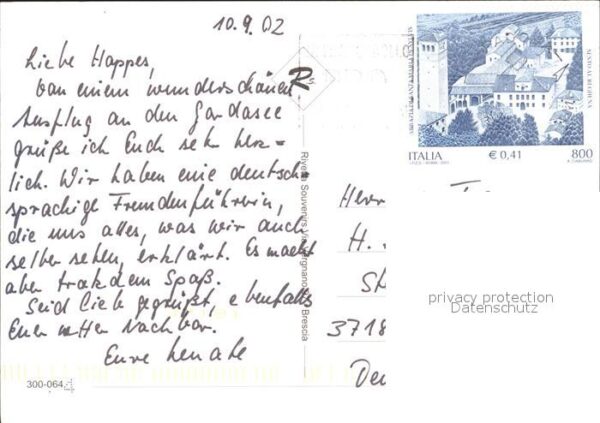 10.9.02
Liebe Happes,
von einem wunderschönen
Ausflug an den Gardasee
grüße ich Euch sehr herz=
lich. Wir haben eine deutsch-
sprachige Fremdenführerin,
die uns alles, was wir auch
selber sehen, erklärt. Es macht
aber trotzdem Spaß.
Seid lieb gegrüßt, ebenfalls
Euer netter Nachbar.
Eure Renate
300-064
R
Rivella Souvenirs Via Brescia
SESTO AL REGHENA
ITALIA € 0,41 800
Herr
H.
St
3718
Deu
privacy protection
Datenschutz